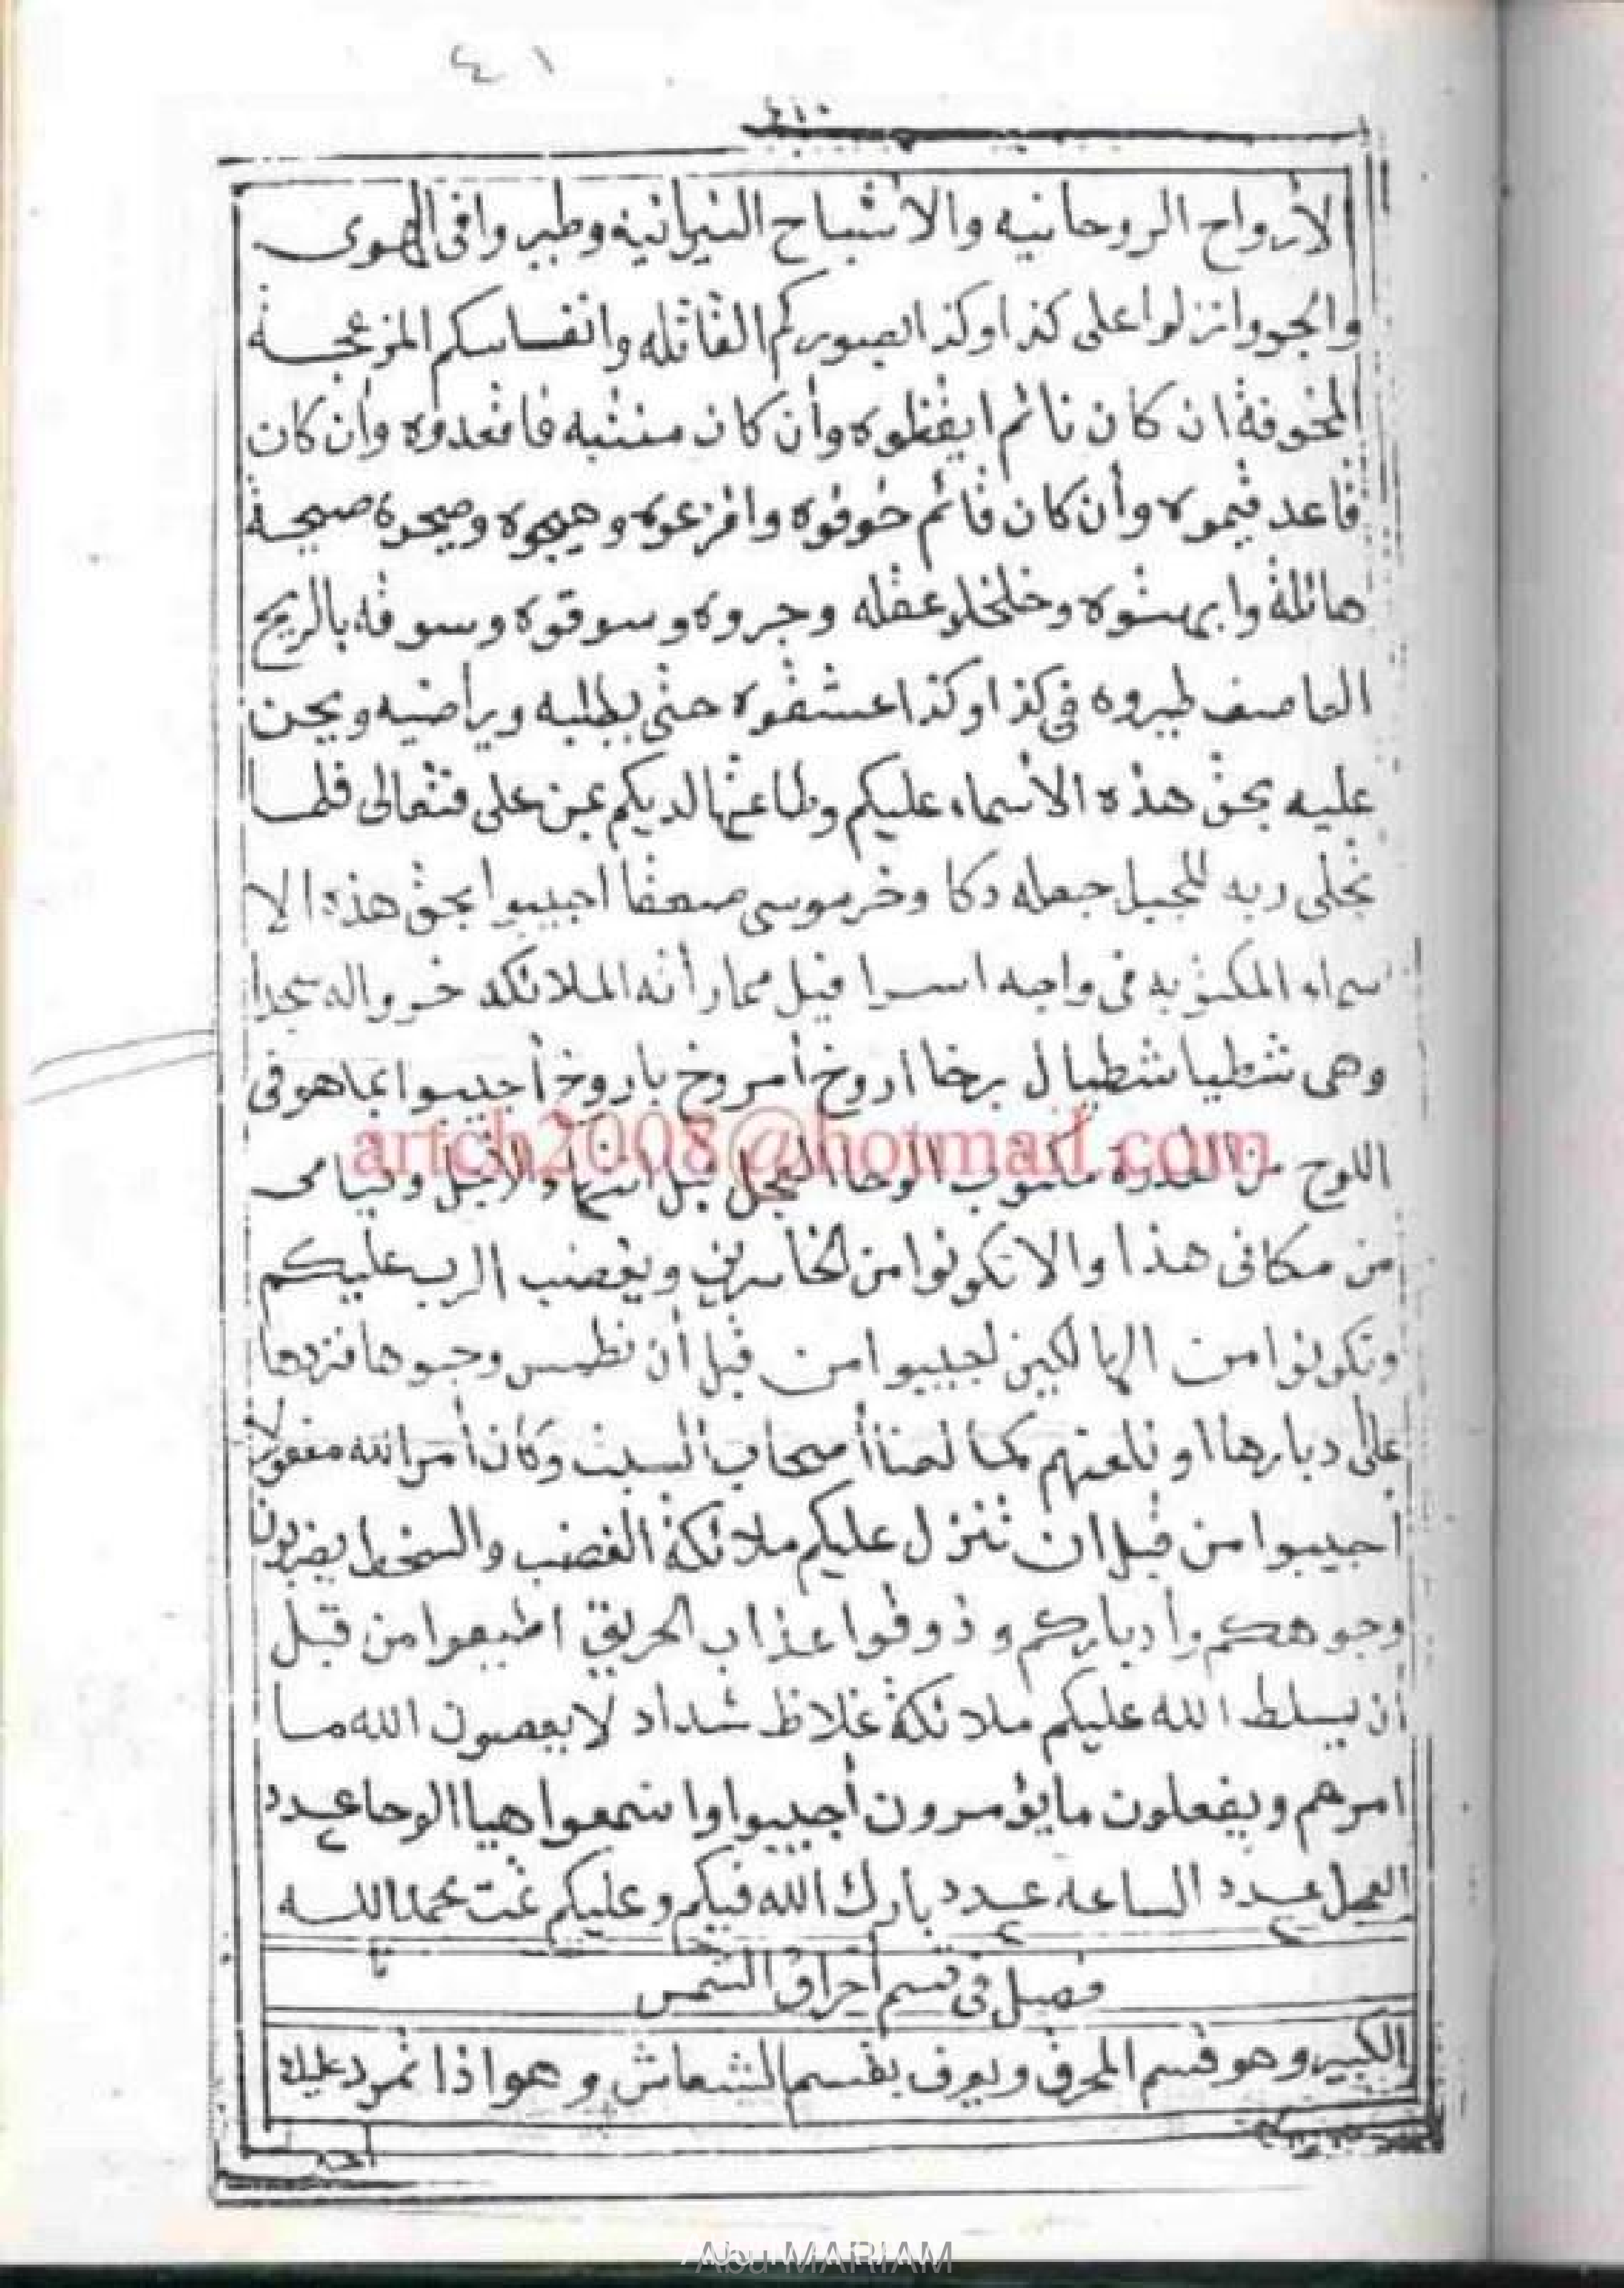 ٤١
لارواح الروحانيه والاشباح النيرانيه وطيروا فى الهوى
والجو وانزلوا على كذا وكذا بصوركم القاتله وانفاسكم المزعجة
المخوفة ان كان نائم ايقظوه وأن كان منتبه فاقعدوه وأن كان
قاعد قيموه وأن كان قائم خوفوه وافزعوه وهيجوه وصيحوه صيحة
هائلة وابهتوه وخلخلو عقله وجروه وسوقوه وسوقه بالريح
العاصف طيروه فى كذا وكذا عشقوه حتى يطلبه ويراضيه ويحن
عليه بحق هذه الاسماء عليكم وطاعتها لديكم عن على فتعالى فلما
تجلى ربه للجبل جعله دكا وخر موسى صعقا اجيبوا بحق هذه الا
سماء المكتوبه فى واجبه اسرا فيل مما رأته الملائكه خرواله سجدا
وهى شطيا شطيال برخا اروخ أمروخ باروخ أجيبوا بما هو فى
اللوح من القدرة مكتوب الوحا العجل قبل
artch2008@hotmail.com
من مكانى هذا والا تكونوا من الخاسرين ويغضب الرب عليكم
وتكونوا من الهالكين اجيبوا من قبل أن نطمس وجوها فنردها
على دبارها او نلعنهم كما لعنا أصحاب السبت وكان أمر الله مفعولا
اجيبوا من قبل ان تنزل عليكم ملائكة الغضب والسخط يضربون
وجوهكم وأدباركم وذوقوا عذاب الحريق اطيعوا من قبل
ان يسلط الله عليكم ملائكة غلاظ شداد لا يعصون الله ما
امرهم ويفعلون ما يؤمرون أجيبوا واسمعوا هيا الوحا عدد
العجل عدد الساعه عدد بارك الله فيكم وعليكم تمت بحمد الله
فصل فى قسم احراق الشمس
الكبير وهو قسم المحرق ويعرف بقسم الشعاش وهو اذا تمرد عليك
Abu MARIAM